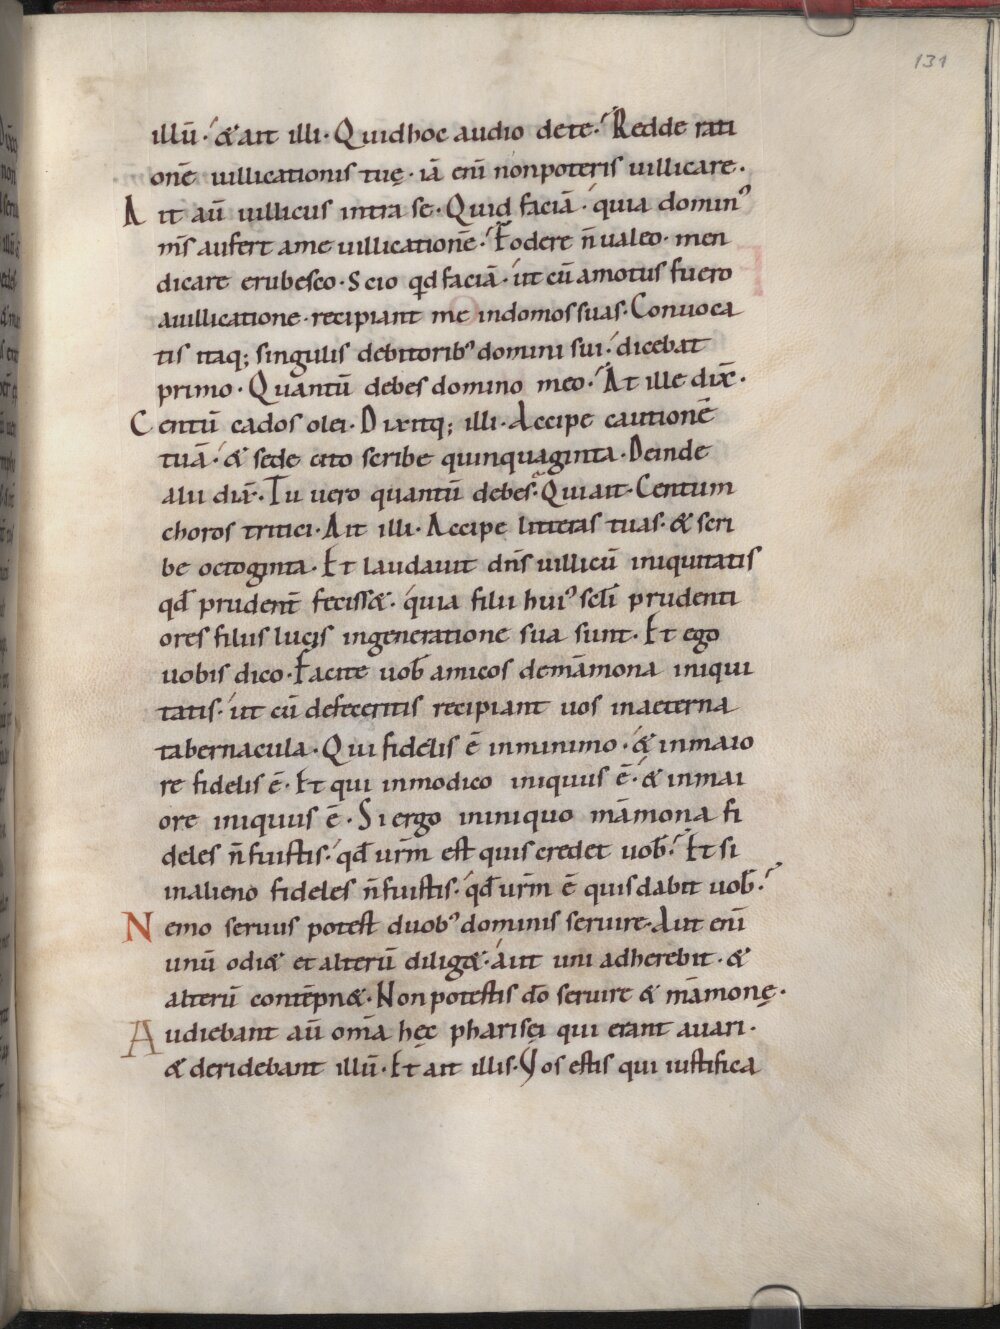 131
illū· & ait illi· Quid hoc audio de te· Redde rati
onē uillicationis tuę· iā enī non poteris uillicare·
Ait aū uillicus intra se· Quid faciā· quia domin᾽
m̄s aufert a me uillicationē· Fodere n̄ ualeo· men
dicare erubesco· Scio qd faciā· ut cū amotus fuero
a uillicatione· recipiant me in domos suas· Conuoca
tis itaq; singulis debitorib᾽ domini sui· dicebat
primo· Quantū debes domino meo· At ille dix̄·
Centū cados olei· Dixitq; illi· Accipe cautionē
tuā· & sede cito scribe quinquaginta· Deinde
alii dix̄· Tu uero quantū debes· Qui ait· Centum
choros tritici· Ait illi· Accipe litteras tuas· & scri
be octoginta· Et laudauit dn̄s uillicū iniquitatis
qđ prudent̄ feciss&· quia filii hui᾽ sc̄li prudenti
ores filiis lucis in generatione sua sunt· Et ego
uobis dico· Facite uob̄ amicos de māmona iniqui
tatis· ut cū defeceritis recipiant uos in aeterna
tabernacula· Qui fidelis ē in minimo· & in maio
re fidelis ē· Et qui in modico iniquus ē· & in mai
ore iniquus ē· Si ergo in iniquo māmona fi
deles n̄ fuistis· qđ ur̄m est quis credet uob̄· Et si
in alieno fideles n̄ fuistis· qđ ur̄m ē quis dabit uob̄·
Nemo seruus potest duob᾽ dominis seruire· Aut enī
unū odi& et alterū dilig&· aut uni adherebit· &
alterū contēpn&· Non potestis do̅ seruire & māmonę·
Audiebant aū om̄ia hęc pharisęi qui erant auari·
& deridebant illū· Et ait illis· Vos estis qui iustifica